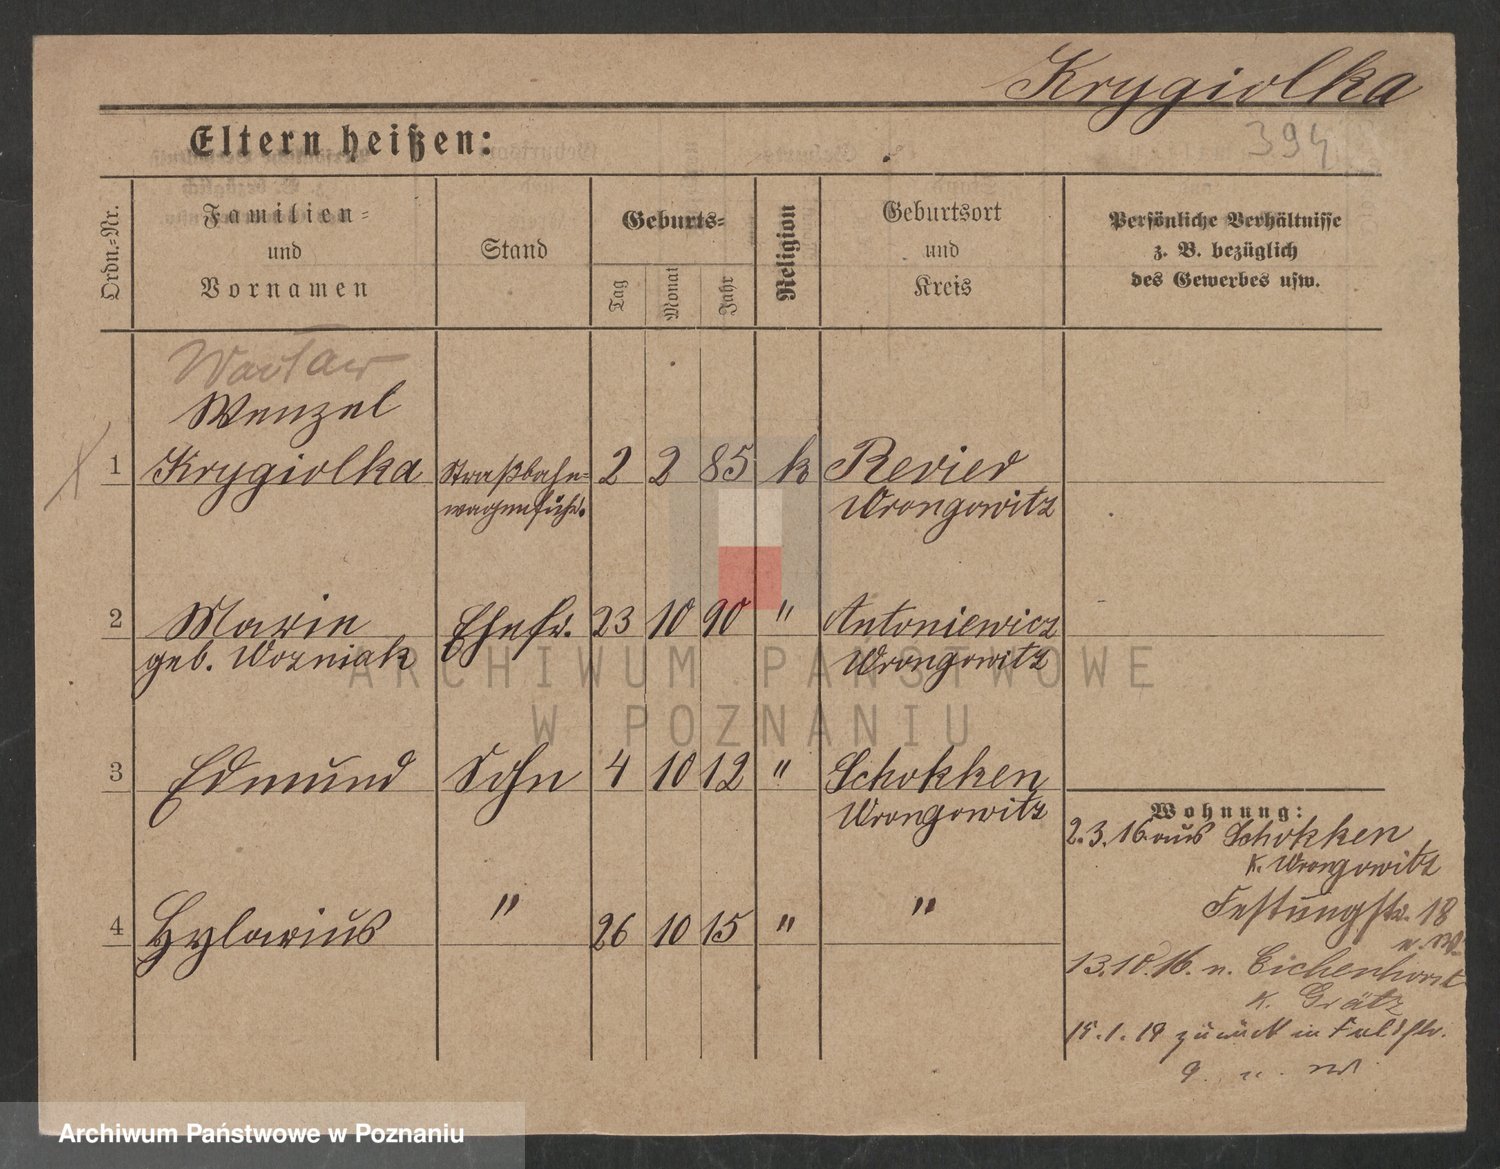 Krygiolka
394
Eltern heißen:
Ordn.=Nr.
Familien=
und
Vornamen
Stand
Geburts=
Tag
Monat
Jahr
Religion
Geburtsort
und
Kreis
Persönliche Verhältnisse
z. B. bezüglich
des Gewerbes usw.
Wacław
Wenzel
1 Krygiolka Straßbahn= 2 2 85 k Revier
wagenführ. Wrongowitz
2 Marie Ehefr. 23 10 90 " Antoniewicz
geb. Wozniak Wrongowitz
3 Edmund Sohn 4 10 12 " Schokken
Wrongowitz
4 Hylarius " 26 10 15 " "
Wohnung:
2.3.16 aus Schokken
K. Wrongowitz
Festungstr. 18
n. W.
13.10.16. n. Eichenhorst
K. Grätz
15.1.19 zurück in Feldstr.
9.
ARCHIWUM PAŃSTWOWE
W POZNANIU
Archiwum Państwowe w Poznaniu